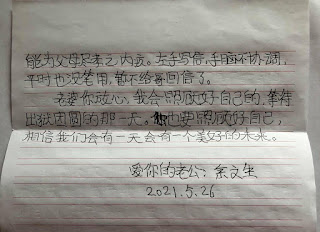 能为父母尽孝之内疚。左手写信,手脑不协调,
平时也没笔用,暂不给哥回信了。
老婆你放心,我会照顾好自己的,等待
出狱团圆的那一天。你也要照顾好自己,
相信我们会有一天会有一个美好的未来。
爱你的老公:余文生
2021.5.26